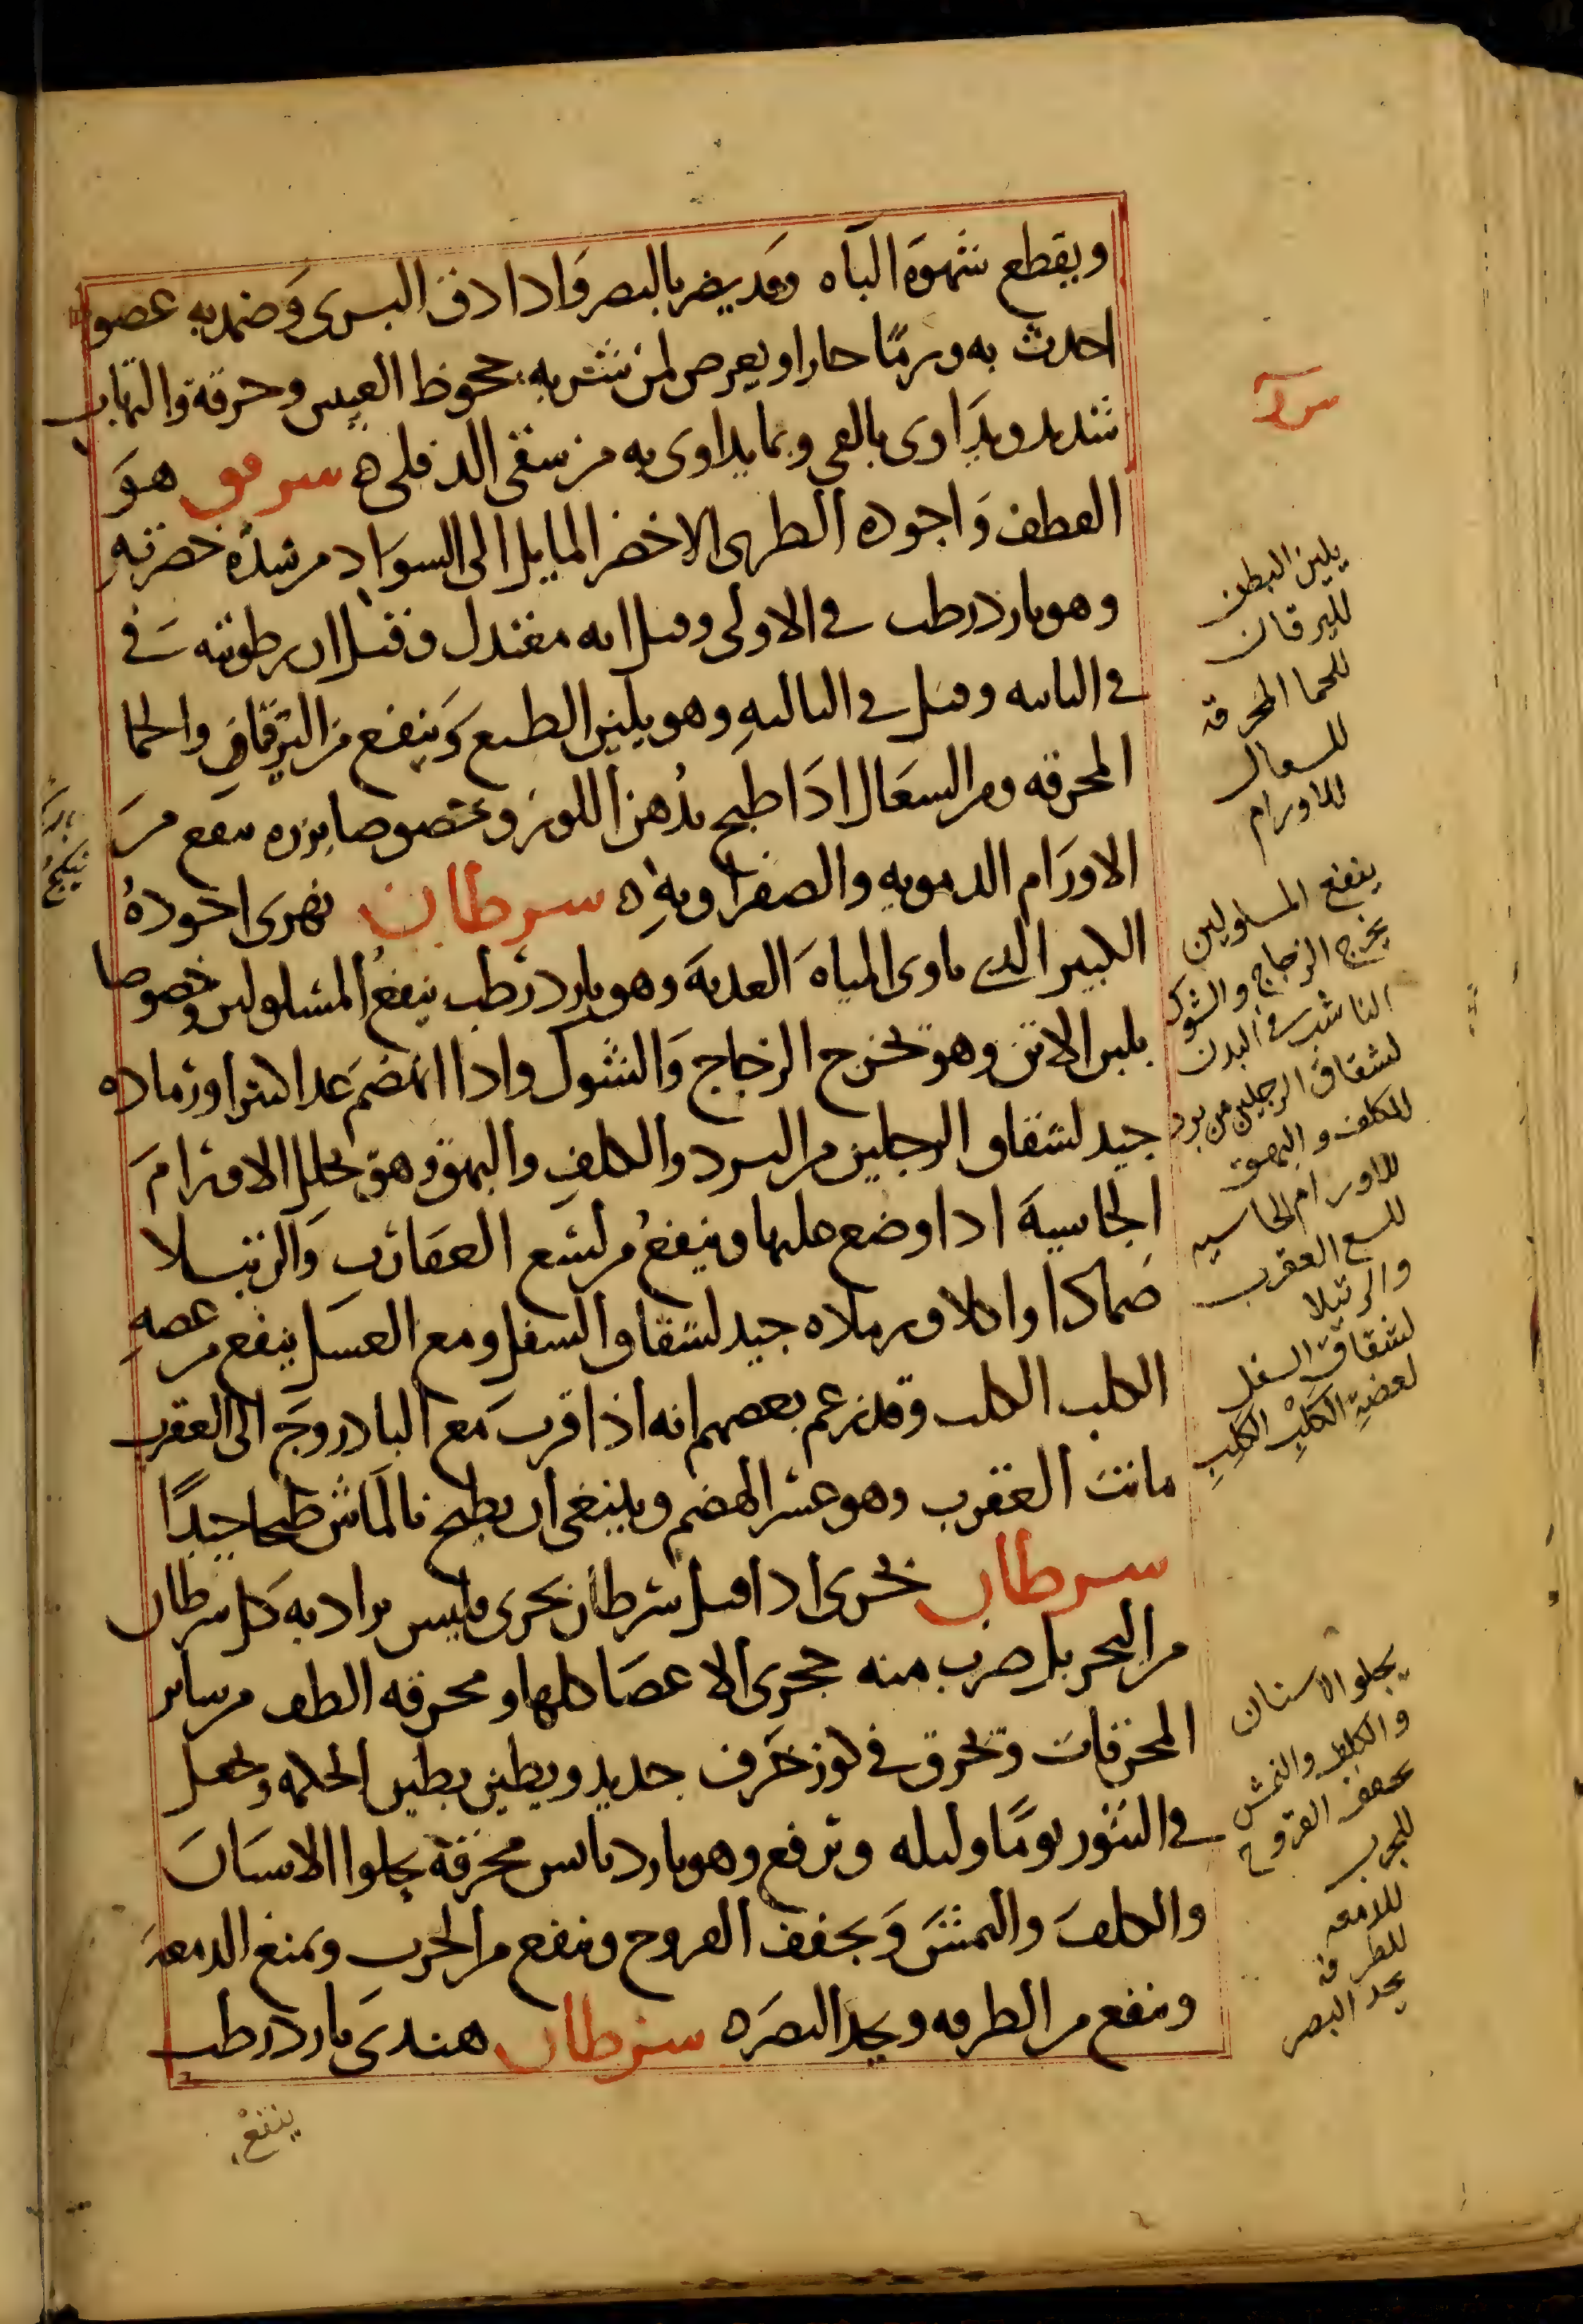 ويقطع شهوة الباه وقد يضر بالبصر واذا دق البرى وضمد به عضو
احدث به ورمًا حارا ويعرض لمن شربه جحوظ العين وحرقة والتهاب
شديد ويداوى بالقي وبما يداوى به من سقى الدفلى ه سرمق هو
القطف واجوده الطرى الاخضر المايل الى السواد من شدة خضرته
وهو بارد رطب في الاولى وقيل انه معتدل وقيل ان رطوبته في
في الثانيه وقيل في الثالثه وهو يلين الطبع وينفع من اليرقان والحما
المحرقه ومن السعال اذا طبخ بدهن اللوز وخصوصا بزره ينفع من
الاورام الدمويه والصفراويه ه سرطان نهرى اجوده
الكبير الذي ماوى المياه العذبة وهو بارد رطب ينفع المسلولين وخصوصا
بلبن الاتن وهو يخرج الزجاج والشوك واذا انهضم غذا كثيرا ورماده
جيد لشقاق الرجلين من البرد والكلف والبهق وهو يحلل الاورام
الجاسية اذا وضع عليها وينفع من لسع العقارب والرتيلا
ضمادا واكلا ورماده جيد لشقاق السفل ومع العسل ينفع من عضه
الكلب الكلب وقد زعم بعضهم انه اذا قرب مع الباذروج الى العقرب
ماتت العقرب وهو عسر الهضم وينبغى ان يطبخ بالماش طبخا جيدًا
سرطان بحرى اذا قيل سرطان بحرى فليس يراد به كل سرطان
من البحر بل ضرب منه حجرى الاعضا كلها ومحرقه الطف من ساير
المحرقات وتحرق في كوز خزف جديد ويطين بطين الحكمه ويجعل
في التنور يومًا وليله وترفع وهو بارد يابس محرقة يجلوا الاسنان
والكلف والنمش ويجفف القروح وينفع من الجرب ويمنع الدمعة
وينفع من الطرفه ويحد البصر ه سرطان هندى بارد رطب
ينفع
يلين البطن
لليرقان
للحما المحرقه
للسعال
للاورام
ينفع المسلولين
يخرج الزجاج والشوك
الناشب في البدن
لشقاق الرجلين من برد
للكلف والبهق
للاورام الجاسيه
للسع العقرب
والرتيلا
لشقاق السفل
لعضة الكلب الكلب
يجلو الاسنان
والكلف والنمش
يجفف القروح
للجرب
للدمعه
للطرفه
يحد البصر